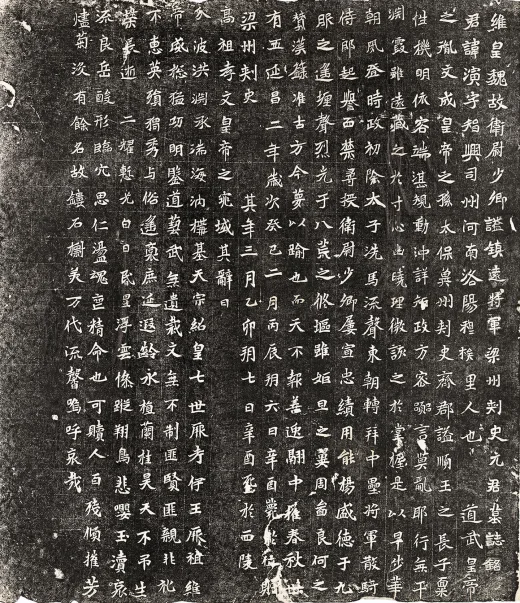 維皇魏故衛尉少卿謚鎮遠將軍梁州刾史元君墓誌銘
君諱演字智興司州河南洛陽穆族里人也 道武皇帝
之胤文成皇帝之孫太保冀州刾史齊郡謚順王之長子稟
性機明依容端湛規動沖詳知政方容言莫亂耶行無平
淵霞雖遠藏之於寸心幽曉理微該之於掌握是以早少華
朝夙登時政初除太子洗馬流聲東朝轉拜中壘將軍散騎
侍郎起譽西禁尋授衛尉少卿屢宣忠績用能楊盛德于九
服之遙壃聲烈光于八荒之攸逼雖姬旦之翼周畨良何之
贊漢籙准古方今蔑以踰也而天不報善逸翮中摧春秋卅
有五延昌二年歲次癸巳二月丙辰朔六日辛酉薨於位贈
梁州刾史 其年三月乙卯朔七日辛酉窆於西陵
高祖孝文皇帝之兆域其辭曰
攸波洪淵承湍海汭櫟基天宗紹皇七世厥考伊王厥祖維
帝咸懃猛功明鑒道藝武無遺裁文無不制匪賢匪親非礼
不惠英殞獨秀与俗遙裏庶延遐齡永植蘭桂昊天不弔生
榮長逝 二耀慙光白日虧星浮雲㒸蹤翔鳥悲嚶玉瀆哀
流良岳酸形臨穴思仁盪魂壹精命也可贖人百殘傾摧芳
燼菊没有餘名故鏤石樹美万代流馨嗚呼哀哉